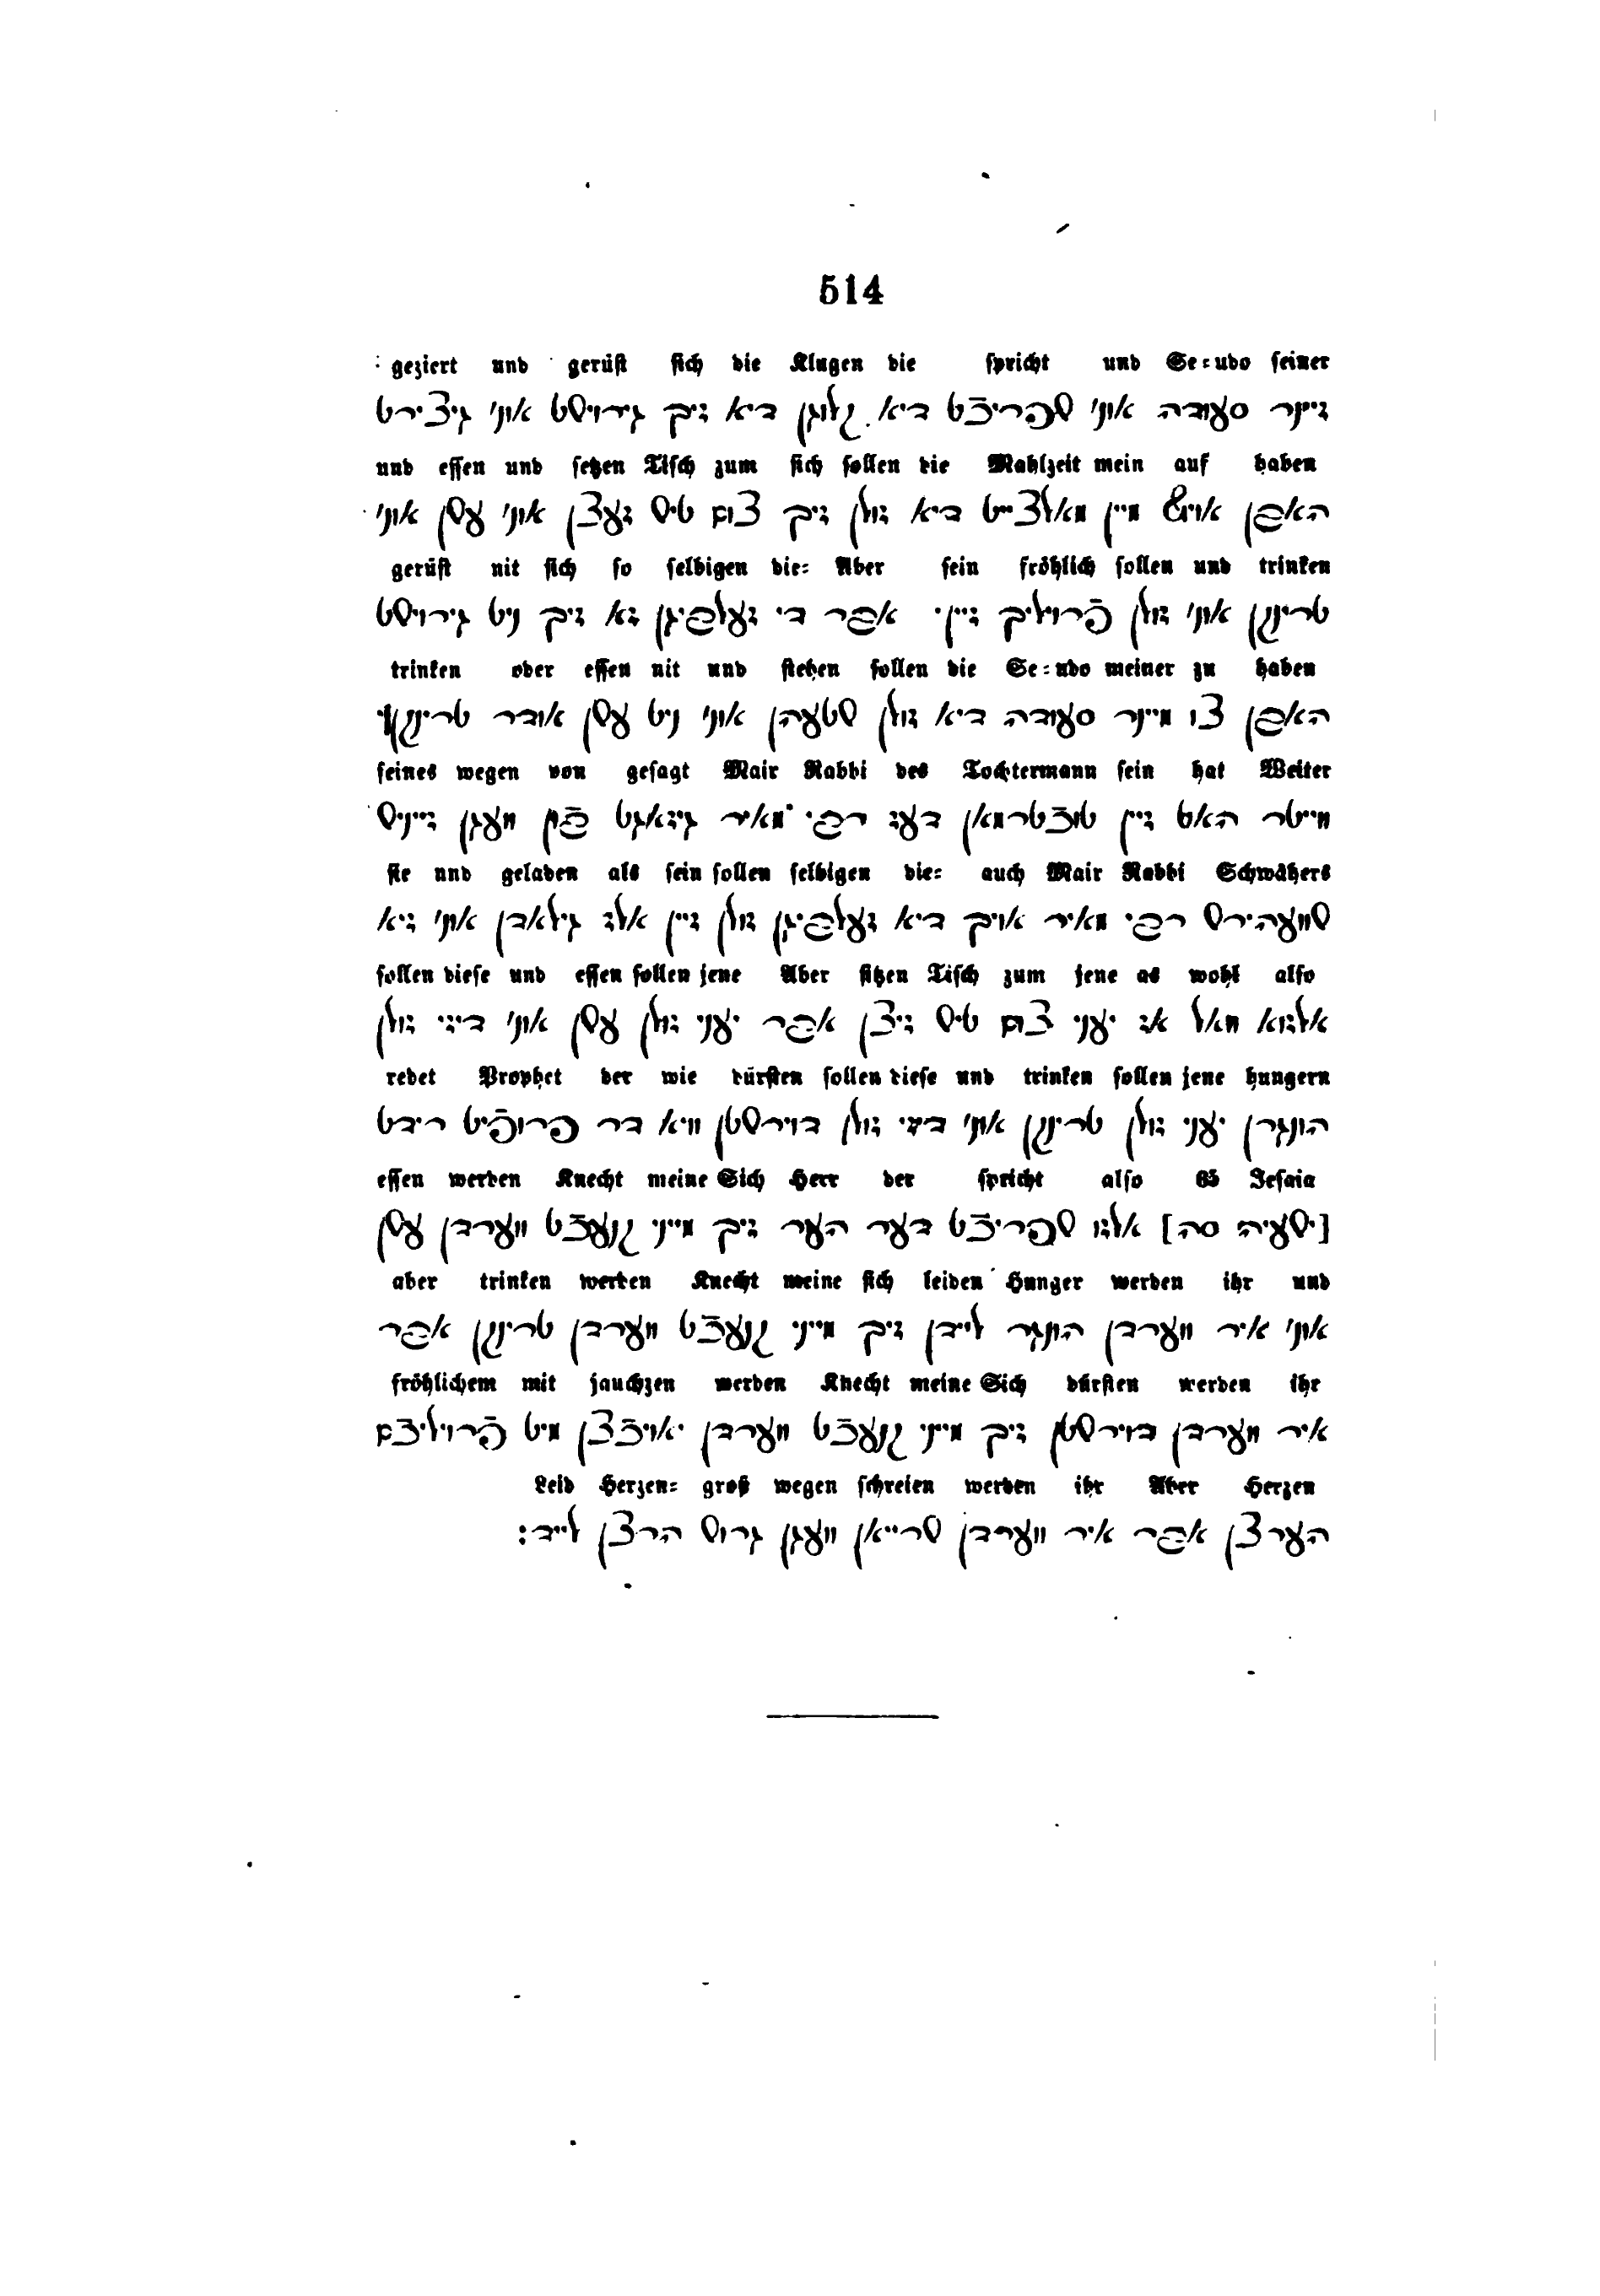 514
geziert und gerüst sich die Klugen die spricht und Se=udo seiner
זיינר סעודה אוני שפריכֿט דיא קלוגן דיא זיך גירוישט אוני גיצירט
und essen und setzen Tisch zum sich sollen die Mahlzeit mein auf haben
האבן אויף מיין מאלצייט דיא זולן זיך צום טיש זעצן אוני עשן אוני
gerüst nit sich so selbigen die= Aber sein fröhlich sollen und trinken
טרינקן אוני זולן פֿרוליך זיין׃ אבר די זעלביגן זא זיך ניט גירוישט
trinken oder essen nit und stehen sollen die Se=udo meiner zu haben
האבן צו מיינר סעודה דיא זולן שטעהן אוני ניט עשן אודר טרינקן׃
seines wegen von gesagt Mair Rabbi des Tochtermann sein hat Weiter
ווייטר האט זיין טוכֿטרמאן דעז רבי מאיר גיזאגט פֿון וועגן זייניש
sie und geladen als sein sollen selbigen die= auch Mair Rabbi Schwähers
שוועהירש רבי מאיר אויך דיא זעלביגן זולן זיין אלז גילאדן אוני זיא
sollen diese und essen sollen jene Aber sitzen Tisch zum jene as wohl also
אלזוא וואל אז יעני צום טיש זיצן אבר יעני זולן עשן אוני דיזי זולן
redet Prophet der wie dürsten sollen diese und trinken sollen jene hungern
הונגרן יעני זולן טרינקן אוני דיזי זולן דוירשטן וויא דר פרופֿיט רידט
essen werden Knecht meine Sich Herr der spricht also 65 Jesaia
[ישעיה סה] אלזו שפריכֿט דער הער זיך מייני קנעכֿט ווערדן עשן
aber trinken werden Knecht meine sich leiden Hunger werden ihr und
אוני איר ווערדן הונגר ליידן זיך מייני קנעכֿט ווערדן טרינקן אבר
fröhlichem mit jauchzen werden Knecht meine Sich dürsten werden ihr
איר ווערדן דוירשטן זיך מייני קנעכֿט ווערדן יאויכֿצן מיט פֿרויליכֿם
Leid Herzen= groß wegen schreien werden ihr Aber Herzen
הערצן אבר איר ווערדן שרייאן וועגן גרוש הרצן לייד׃